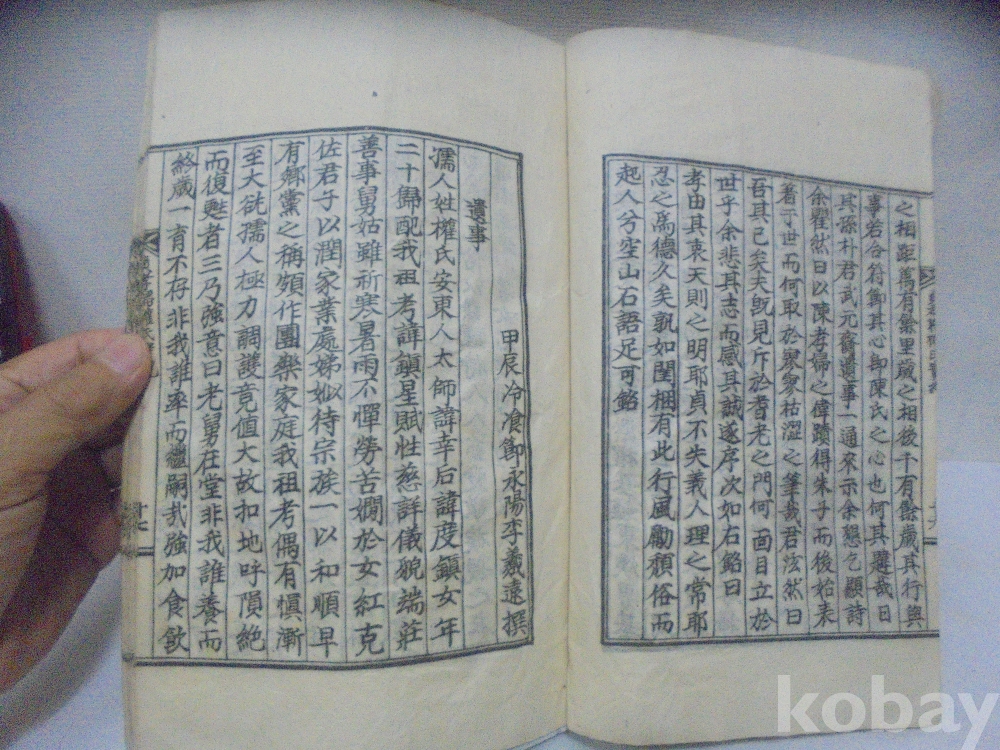 之相距萬有餘里歲之相後千有餘歲其行與
事若合符節其心卽陳氏之心也何其韙哉日
其孫朴君武元齎遺事一通來示余懇乞顯詩
余瞿然曰以陳孝婦之偉蹟得朱子而後始表
著于世而何取於寥寥枯澀之筆哉君泫然曰
吾其已矣夫旣見斥於耆老之門何面目立於
世乎余悲其志而感其誠遂序次如右銘曰
孝由其衷天則之明耶貞不失義人理之常耶
忍之爲德久矣孰如閨梱有此行風勵頹俗而
起人兮空山石語足可銘
甲辰冷飡節永陽李羲遠撰
遺事
孺人姓權氏安東人太師諱幸后諱度鎭女年
二十歸配我祖考諱鎭星賦性慈詳儀貌端莊
善事舅姑雖祈寒暑雨不憚勞苦嫺於女紅克
佐君子以潤家業處娣姒待宗族一以和順早
有鄕黨之稱頻作團欒家庭我祖考偶有愼漸
至大㞃孺人極力調護竟値大故扣地呼隕絶
而復甦者三乃強意曰老舅在堂非我誰養而
終歲一育不存非我誰率而繼嗣哉強加食飮
kobay